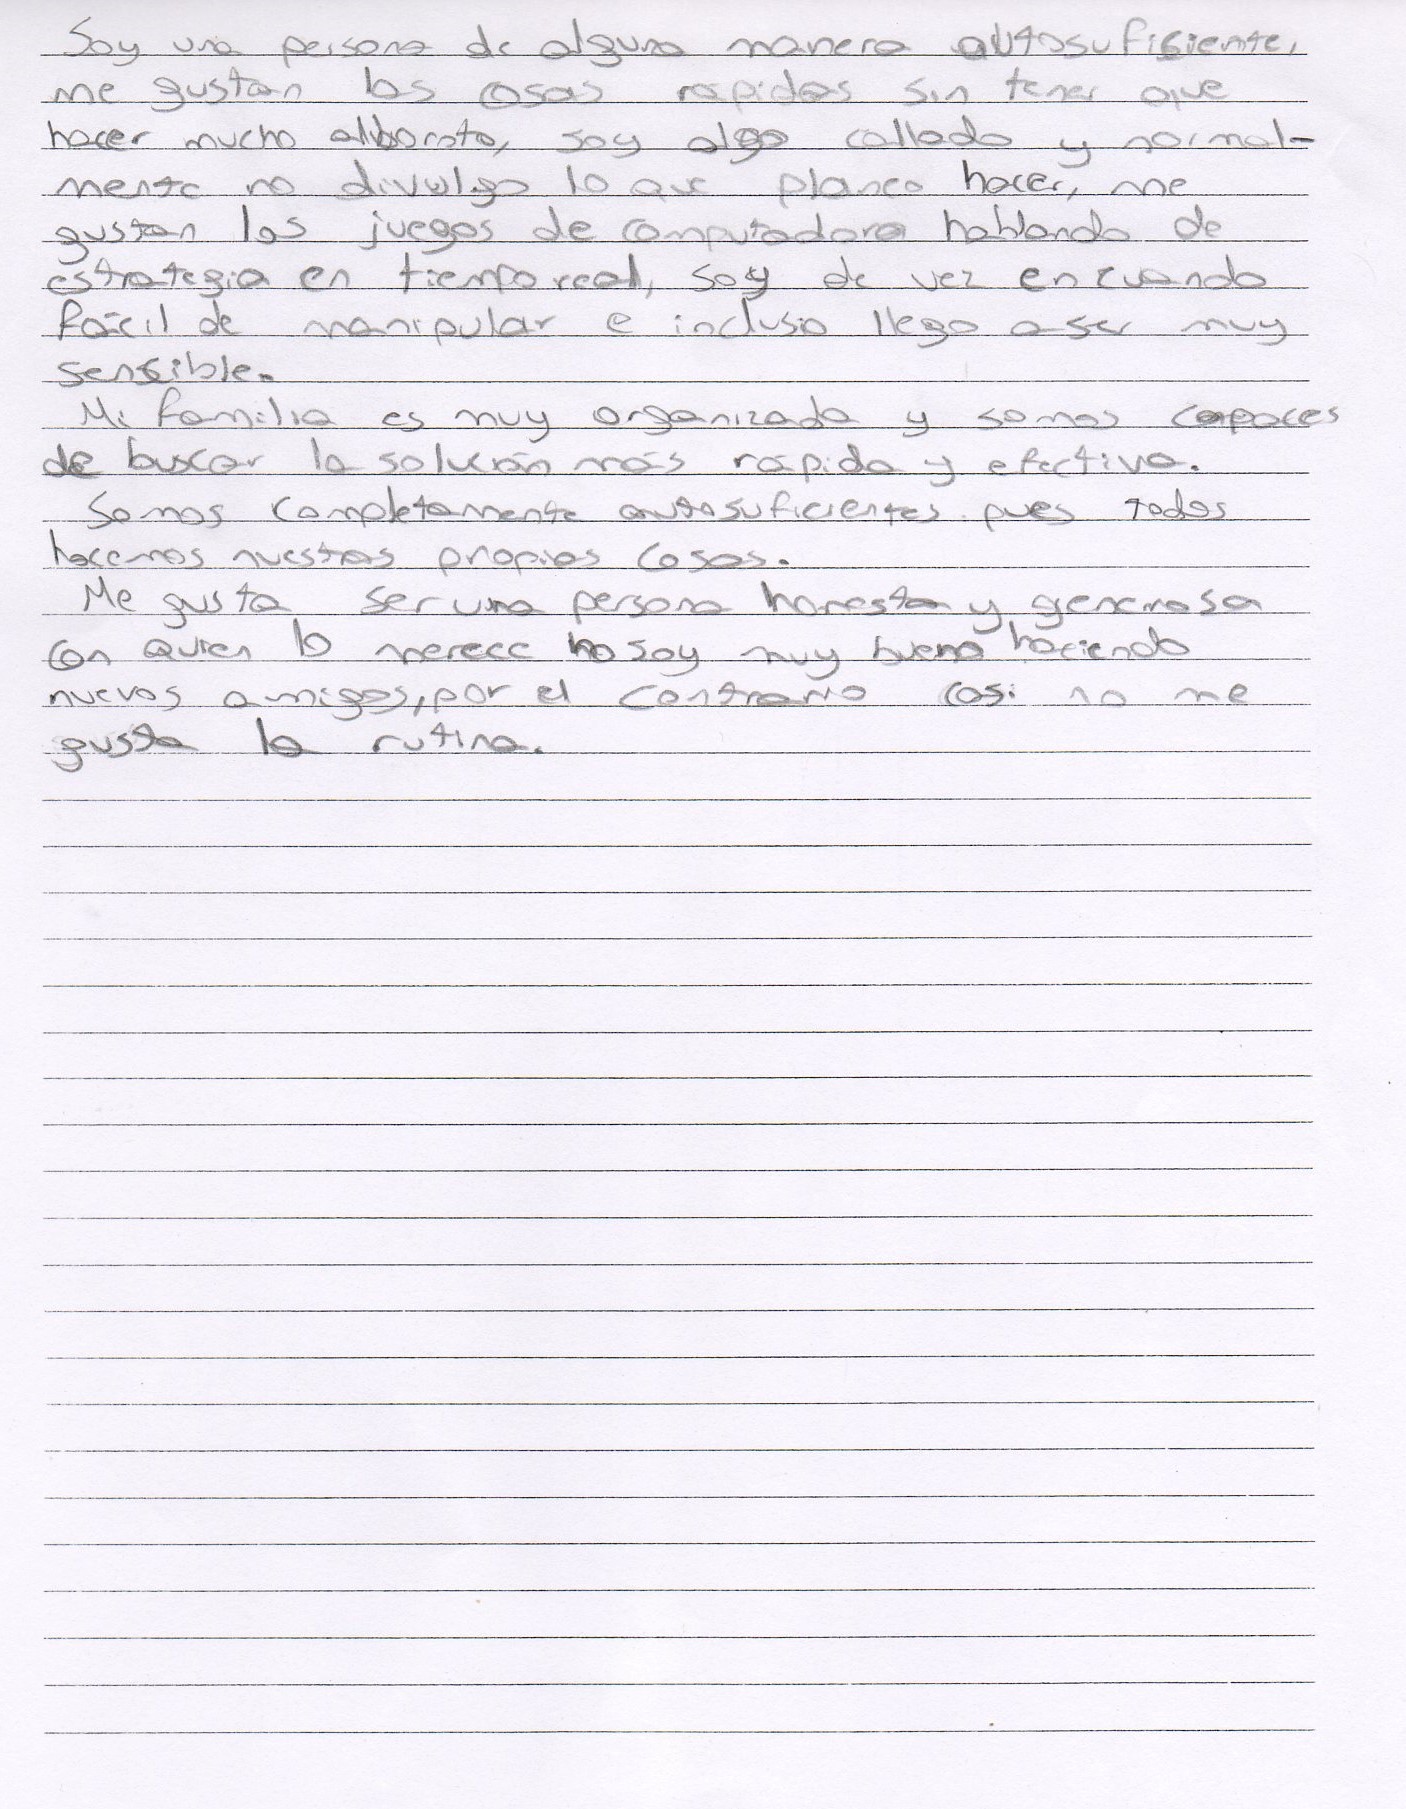 Soy una persona de alguna manera autosufisiente,
me gustan las cosas rapidas sin tener que
hacer mucho alboroto, soy algo callado y normal-
mente no divulgo lo que planeo hacer, me
gustan los juegos de computadora hablando de
estrategia en tiempo real, soy de vez en cuando
fácil de manipular e inclusio llego a ser muy
sensible.
Mi familia es muy organizada y somos capaces
de buscar la solución más rapida y efectiva.
Somos completamente autosuficientes pues todos
hacemos nuestras propias cosas.
Me gusta ser una persona honesta y generosa
con quien lo merece no soy muy bueno haciendo
nuevos amigos, por el contrario casi no me
gusta la rutina.